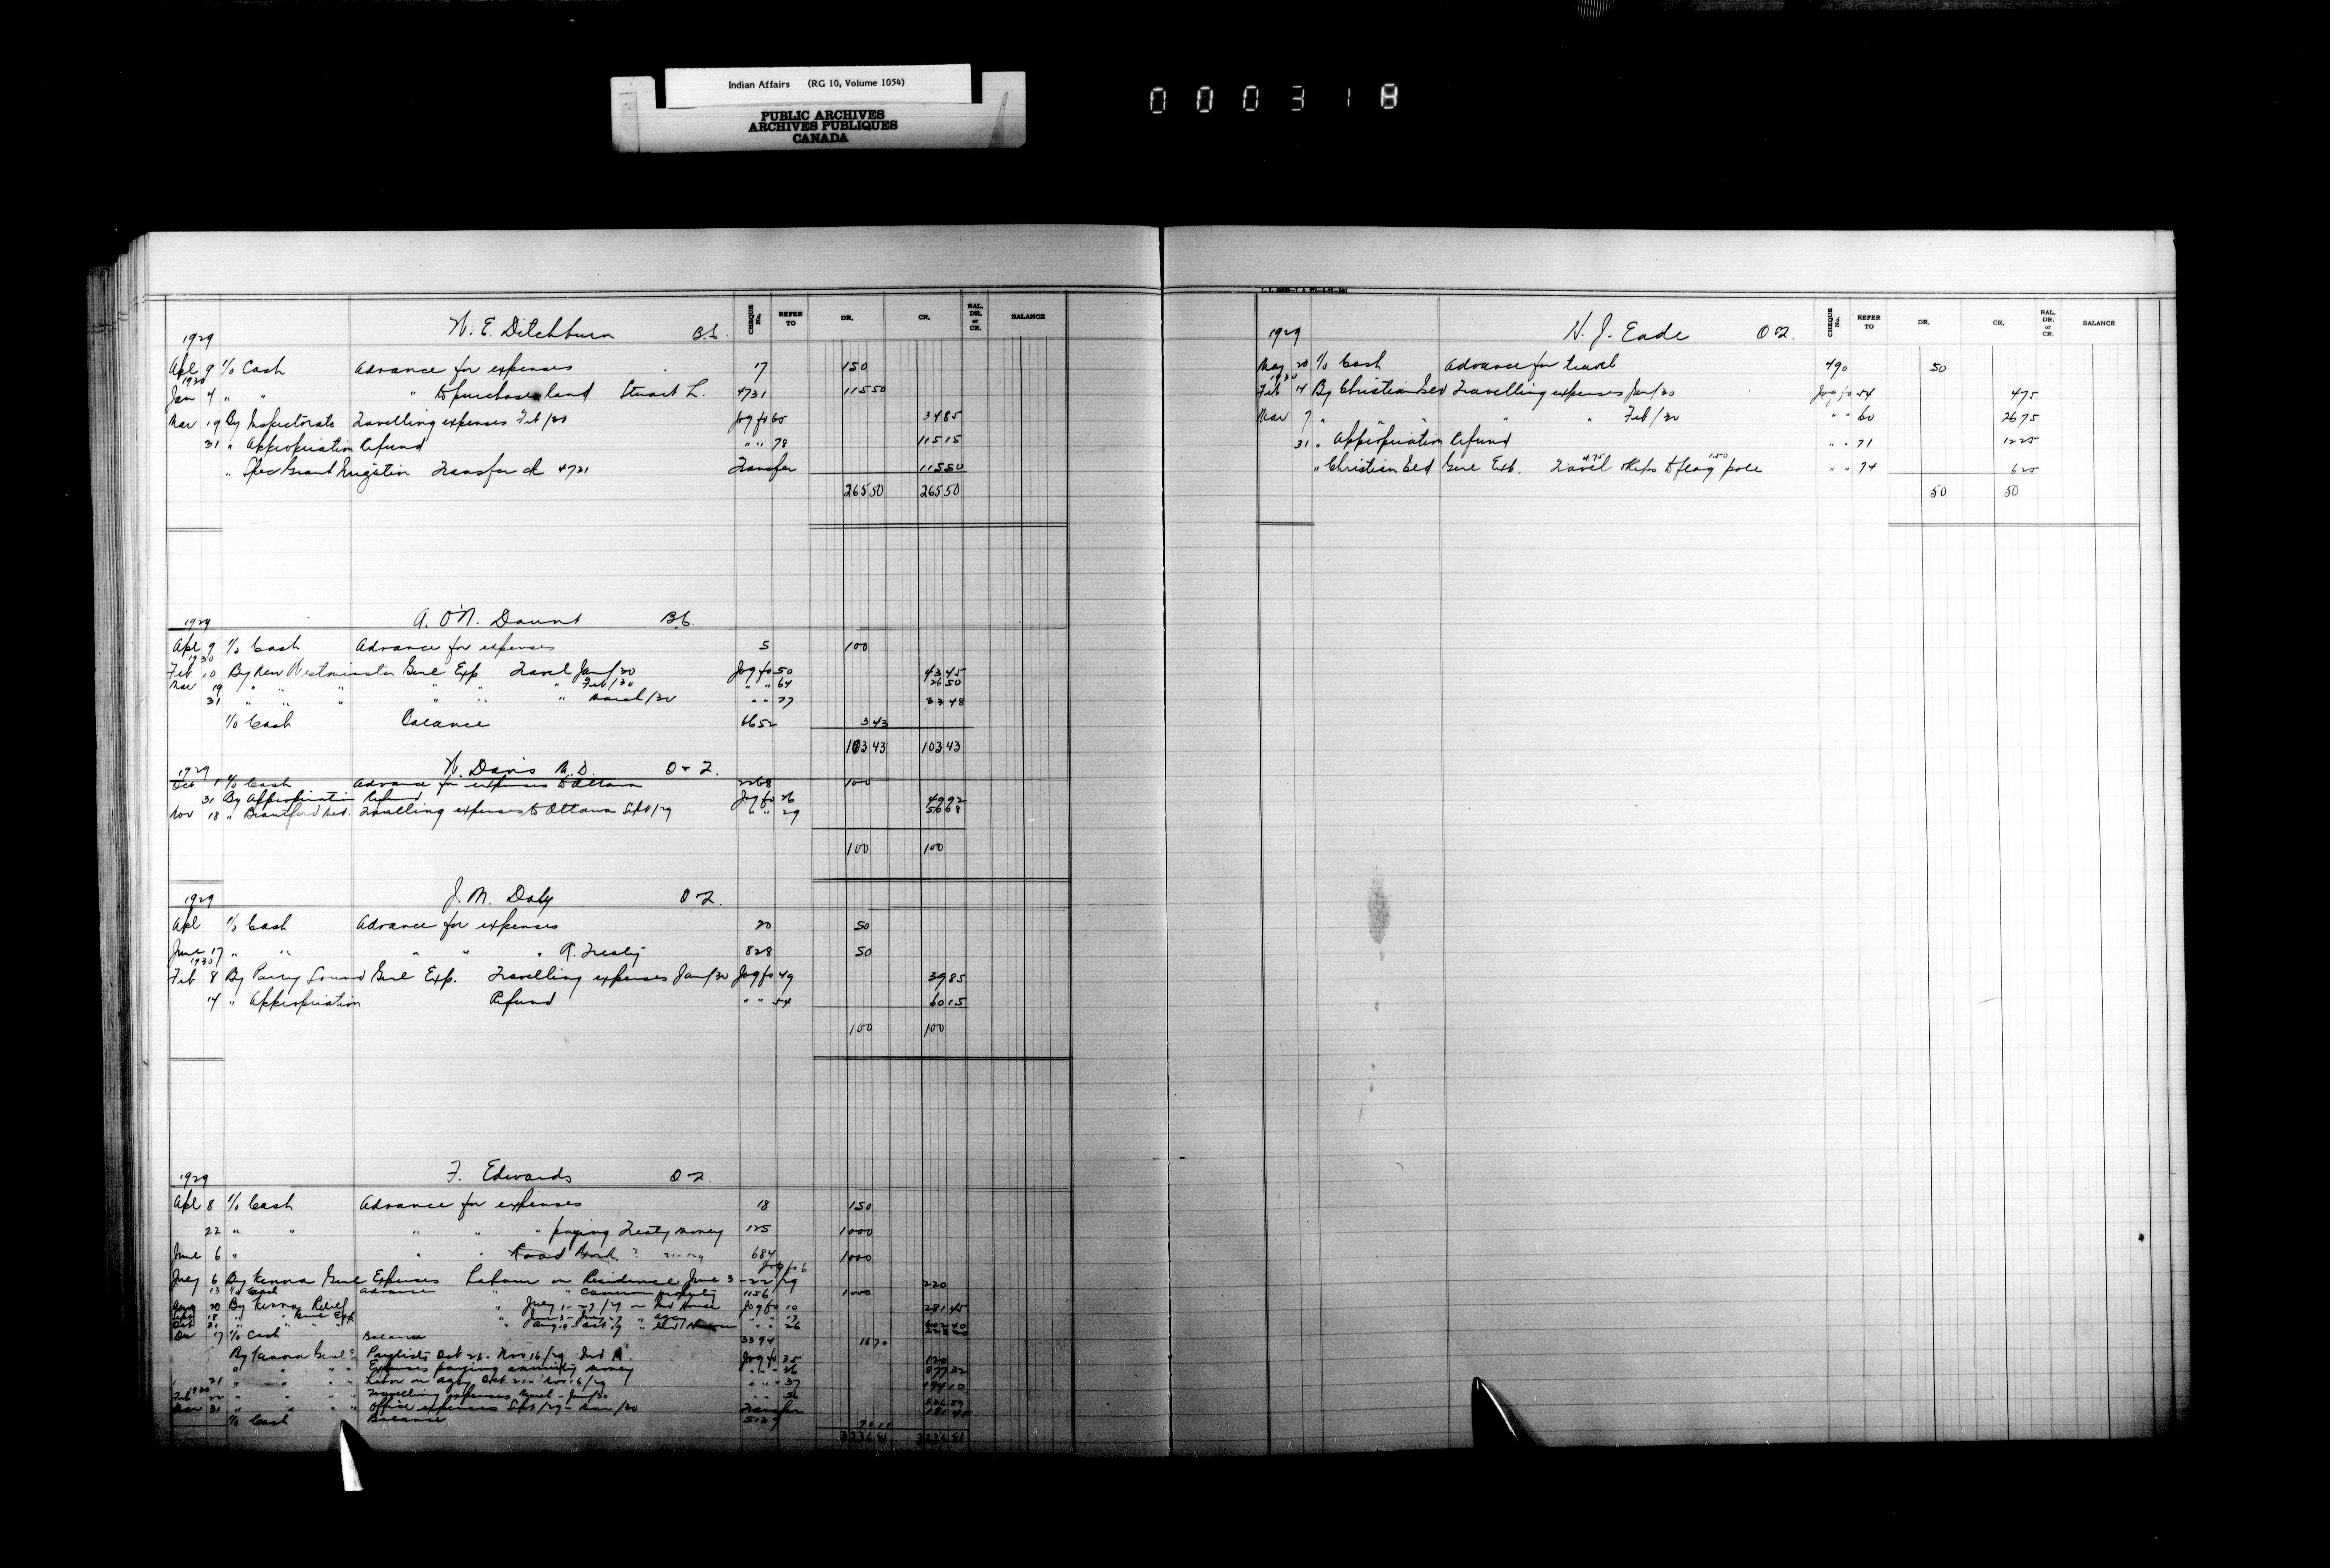 Indian Affairs (RG 10, Volume 1054)
PUBLIC ARCHIVES
ARCHIVES PUBLIQUES
CANADA
000318
1929 W. E. Ditchburn B.C. CHEQUE No. REFER TO DR. CR. BAL. DR. or CR. BALANCE
Apl 9 To Cash Advance for expenses 17 150
1930
Jan 4 " " " to purchase land Stuart L. 4731 11550
Mar 19 By Inspectorate Travelling expenses Feb/30 Jog fo 65 3485
31 " Appropriation Refund " " 78 11515
" Spec Grant Irrigation Transfer ck 4731 Transfer 11550
26550 26550
1929 A. O'N. Daunt B.C.
Apl 9 To Cash Advance for expenses 5 100
1930
Feb 10 By New Westminster Genl Exp Travel Jan/30 Jog fo 50 4345
Mar 19 " " " " " " Feb/30 " " 64 2650
31 " " " " " " March/30 " " 77 3348
To Cash Balance 6652 343
10343 10343
1929 W. Davis M.D. O & 2.
Oct 1 To Cash Advance for expenses to Ottawa 2268 100
31 By Appropriation Refund Jog fo 26 4992
Nov 18 " Brantford Med. Travelling expenses to Ottawa Sept/29 " " 29 5008
100 100
1929 J. M. Daly O 2.
Apl To Cash Advance for expenses 20 50
June 17 " " " " " R. Treaty 828 50
1930
Feb 8 By Parry Sound Genl Exp. Travelling expenses Jan/30 Jog fo 49 3985
14 " Appropriation Refund " " 54 6015
100 100
1929 F. Edwards O 2.
Apl 8 To Cash Advance for expenses 18 150
22 " " " " " paying Treaty money 125 1000
June 6 " " " Road Work 684 1000
July 6 By Kenora Genl Expenses Labour on Residence June 3-22/29 Jog fo 6 220
13 To Cash Advance " " Cameron property 1156 1000
Aug 20 By Kenora Relief " July 1-27/29 on Ind House Jog fo 10 28145
Oct 31 26
Dec 17 To Cash Balance 3394 1670
By Kenora Genl Paylists Oct 26-Nov 16/29 Jog fo 35 120
" " " " Expenses paying annuity money " " 36 87732
21 " " " " Labor on agcy Oct 21-Nov 16/29 " " 37 19410
1930
Feb 22 " " " " Travelling expenses - Jan/30 " " 56
Mar 31 " " " " Office expenses Sept/29-Mar/30 Transfer
To Cash Balance
323681 323681
1929 H. J. Eade O 2. CHEQUE No. REFER TO DR. CR. BAL. DR. or CR. BALANCE
May 20 To Cash Advance for travel 490 50
1930
Feb 14 By Christian Isld Travelling expenses Jan/30 Jog fo 54 475
Mar 7 " " " " Feb/30 " " 60 2675
31 " Appropriation Refund " " 71 1225
" Christian Isld Genl Exp. Travel 4.75 to flag pole 1.50 " " 74 625
50 50